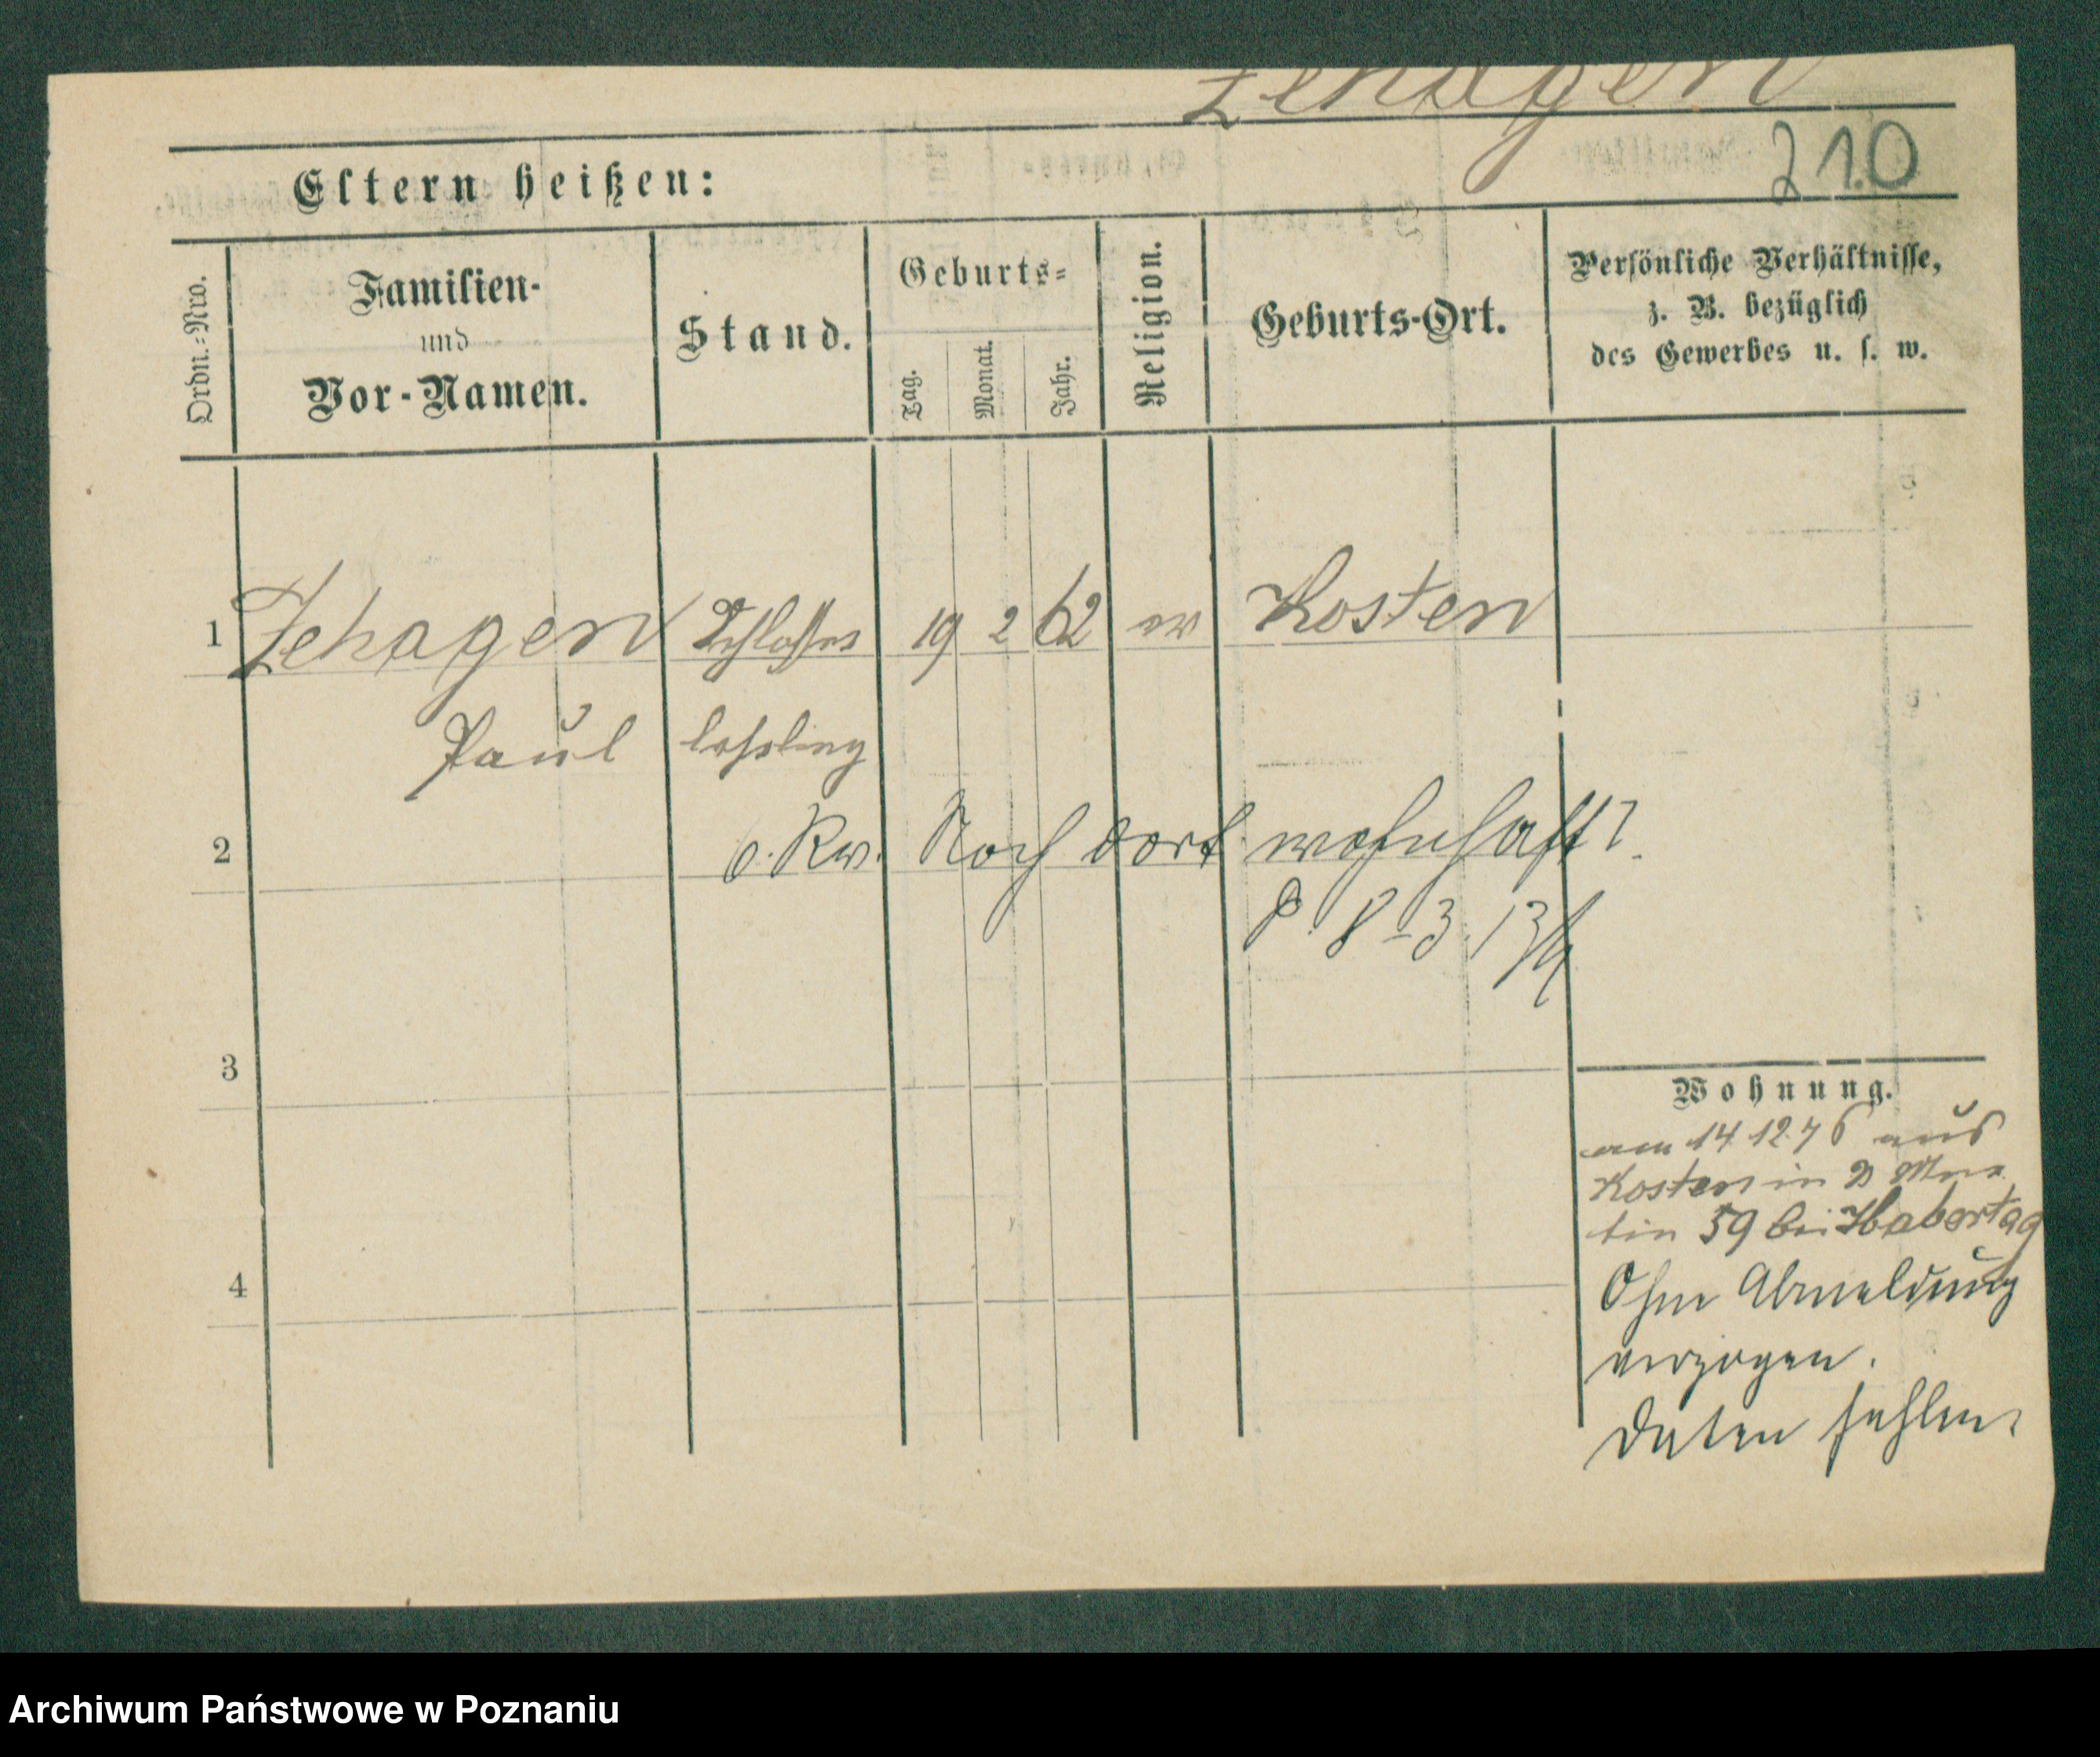 Zehagen
210
Eltern heißen:
Ordn.-Nro.
Familien-
und
Vor-Namen.
Stand.
Geburts-
Tag.
Monat.
Jahr.
Religion.
Geburts-Ort.
Persönliche Verhältnisse,
z. B. bezüglich
des Gewerbes u. s. w.
1 Zehagen Schlosser 19 2 62 ev Kosten
Paul lehrling
2 Noch dort wohnhaft?
P. 8-3.
3
4
Wohnung.
am 14 12 76 aus
Kosten in
tin 59 bei Habertag
Ohne Abmeldung
verzogen.
Daten fehlen.
Archiwum Państwowe w Poznaniu